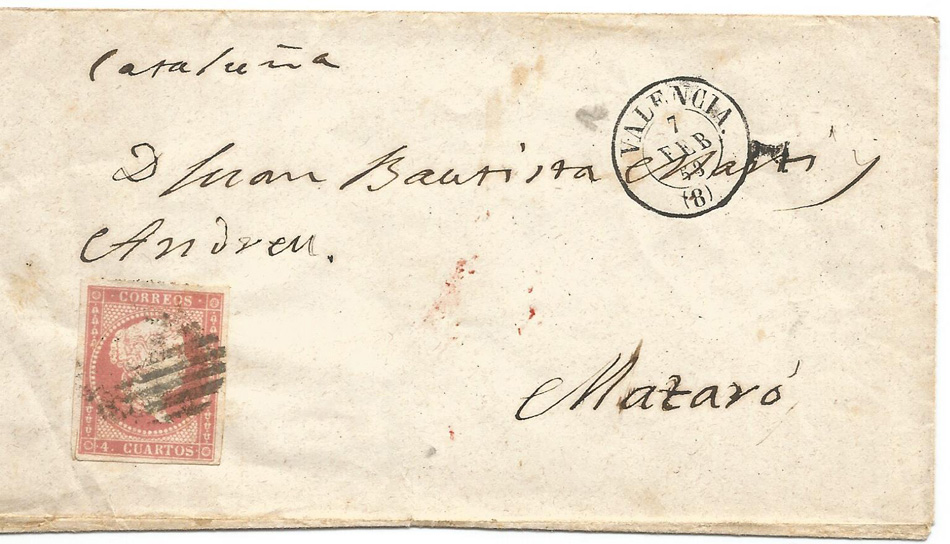 Cataluña
VALENCIA.
7
FEB
59
(8)
D Juan Bautista Marti y
Andreu.
CORREOS
4. CUARTOS
Mataró